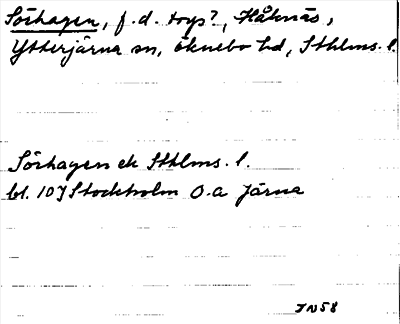 Sörhagen, f.d. torp?, Håknäs,
Ytterjärna sn, Öknebo hd, Sthlms. l.
Sörhagen ek Sthlms. l.
bl. 10J Stockholm O.a Järna
JN58